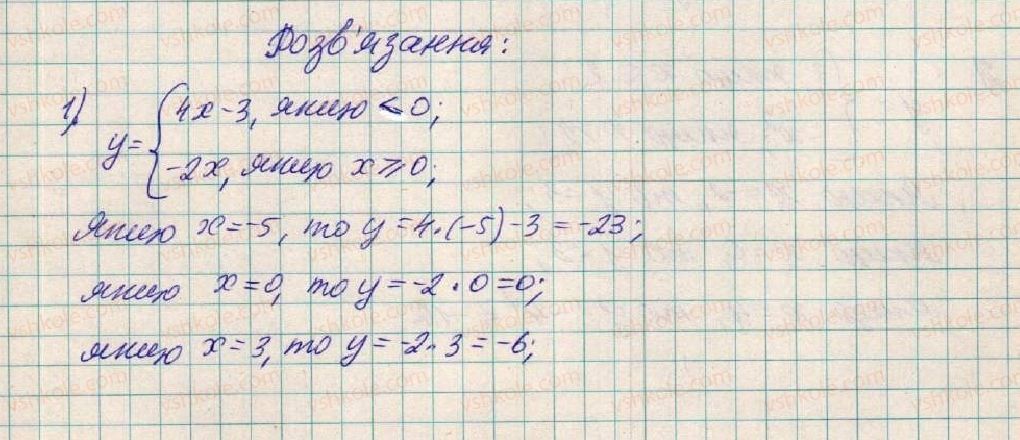 Розв'язання:
1) y = { 4x - 3, якщо < 0;
-2x, якщо x ⩾ 0;
Якщо x = -5, то y = 4 · (-5) - 3 = -23;
якщо x = 0, то y = -2 · 0 = 0;
якщо x = 3, то y = -2 · 3 = -6;